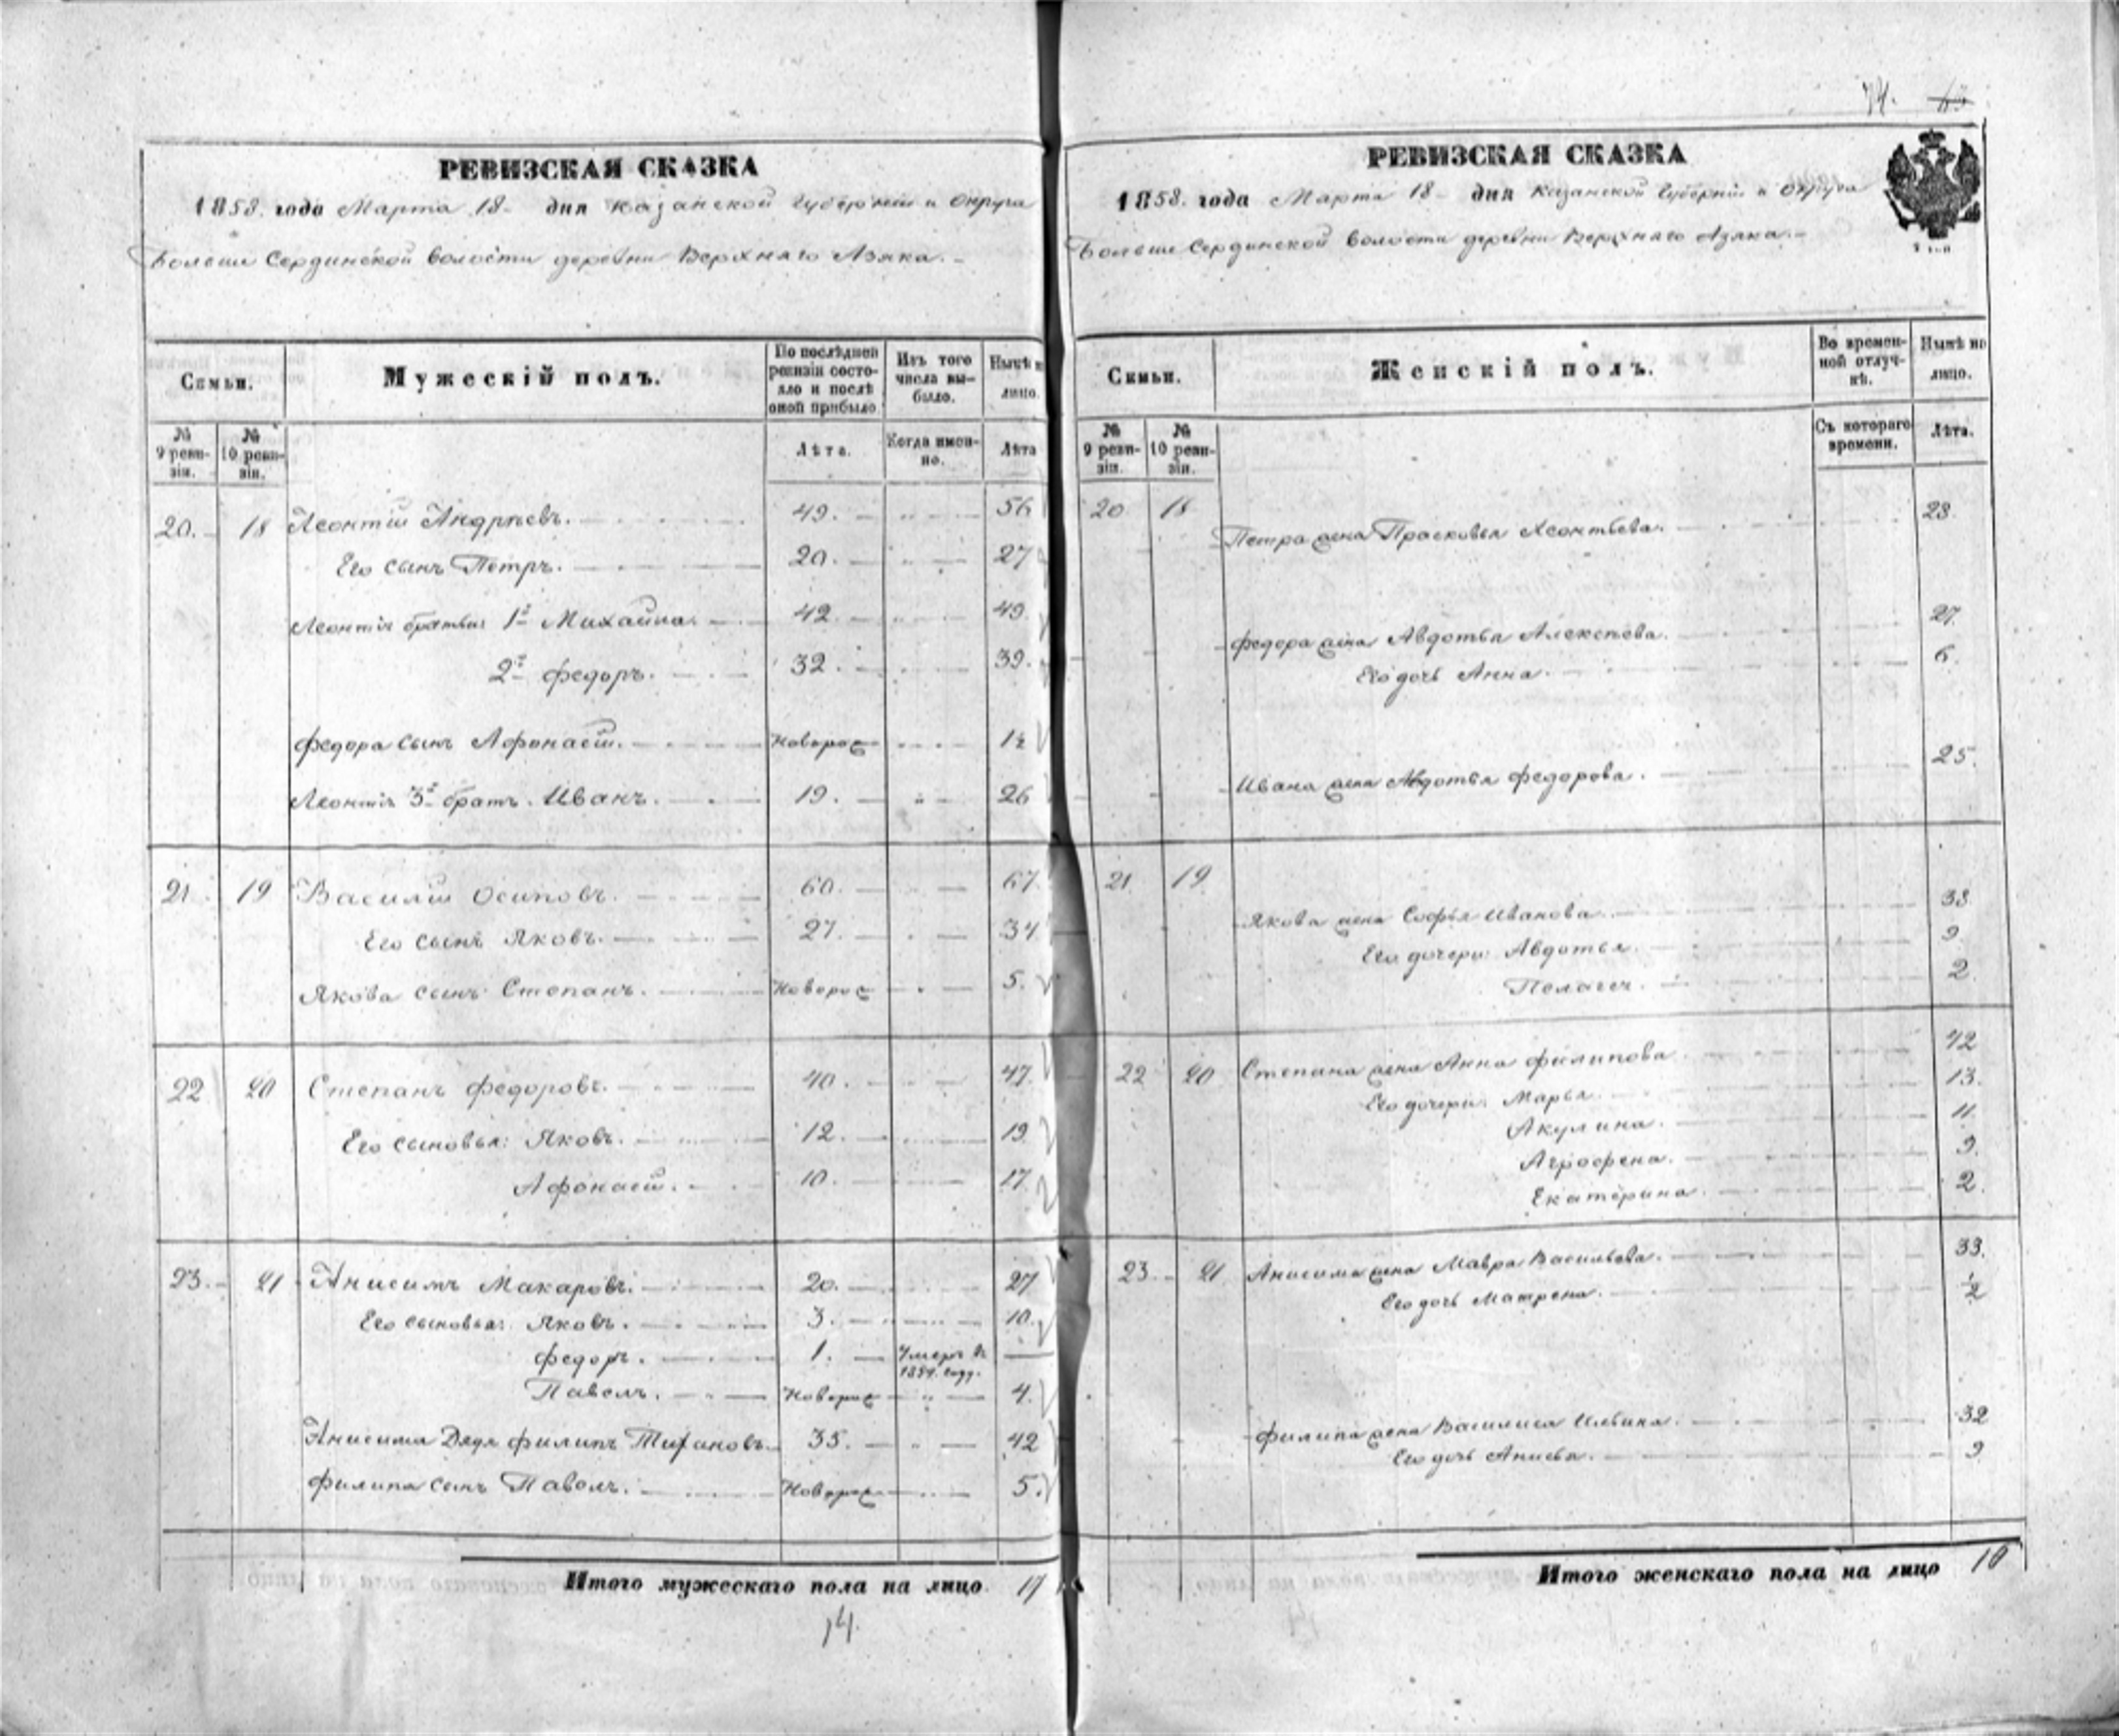 74. 65
РЕВИЗСКАЯ СКАЗКА
1858. года Марта 18 дня Казанской Губерніи и Округа
Больше Сердинской волости деревни Верхняго Азяка.
Семьи.
Мужескій полъ.
По послѣдней ревизіи состояло и послѣ оной прибыло
Изъ того числа выбыло.
Нынѣ на лицо.
№ 9 ревизіи.
№ 10 ревизіи.
Лѣта.
Когда именно.
Лѣта
20. 18 Леонтій Андрѣевъ. 49. 56
Его сынъ Петръ. 20. 27
Леонтія братья: 1й Михайла. 42. 49.
2й Федоръ. 32. 39.
Федора сынъ Афонасій. Новорож 1½
Леонтія 3й братъ Иванъ. 19. 26
21. 19 Василій Осиповъ. 60. 67.
Его сынъ Яковъ. 27. 34
Якова сынъ Степанъ. Новорож 5.
22 20 Степанъ Федоровъ. 40. 47.
Его сыновья: Яковъ. 12. 19.
Афонасій. 10. 17.
23. 21 Анисимъ Макаровъ. 20. 27
Его сыновья: Яковъ. 3. 10.
Федоръ. 1. Умеръ въ 1854. году.
Павелъ. Новорож 4.
Анисима Дядя Филипъ 35. 42
Филипа сынъ Павелъ. Новорож 5.
Итого мужескаго пола на лицо 17
14.
РЕВИЗСКАЯ СКАЗКА
1858. года Марта 18 дня Казанской Губерніи и Округа
Больше Сердинской волости деревни Верхняго Азяка.
Семьи.
Женскій полъ.
Во временной отлучкѣ.
Нынѣ на лицо.
№ 9 ревизіи.
№ 10 ревизіи.
Съ котораго времени.
Лѣта.
20 18 Петра жена Прасковья Леонтьева. 28.
Федора жена Авдотья Алексѣева. 27.
Его дочь Анна. 6.
Ивана жена Авдотья Федорова. 25.
21. 19. Якова жена Софья Иванова. 38.
Его дочери: Авдотья. 9.
Пелагея. 2.
22 20 Степана жена Анна Филипова. 42
Его дочери: Марья. 13.
Акулина. 11.
Агрофена. 9.
Екатерина. 2.
23. 21 Анисима жена Мавра Васильева. 33.
Его дочь Матрена. ½
Филипа жена Василиса Ильина. 32
Его дочь Анисья. 9
Итого женскаго пола на лицо 16